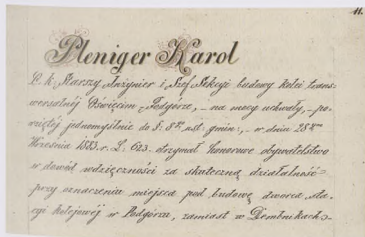 11.
Pleniger Karol
C. k. Starszy Inżynier i Szef Sekcyi budowy kolei trans-
wersalnéj Oświęcim-Podgórze, - na mocy uchwały, - po-
wziętéj jednomyślnie do §: 8go ust: gmin:, - w dniu 28ym
Września 1883. r. L: 623. otrzymał Honorowe obywatelstwo
w dowód wdzięczności za skuteczną działalność
przy oznaczeniu miejsca pod budowę dworca sta-
cyi kolejowéj w Podgórzu, zamiast w Dembnikach.